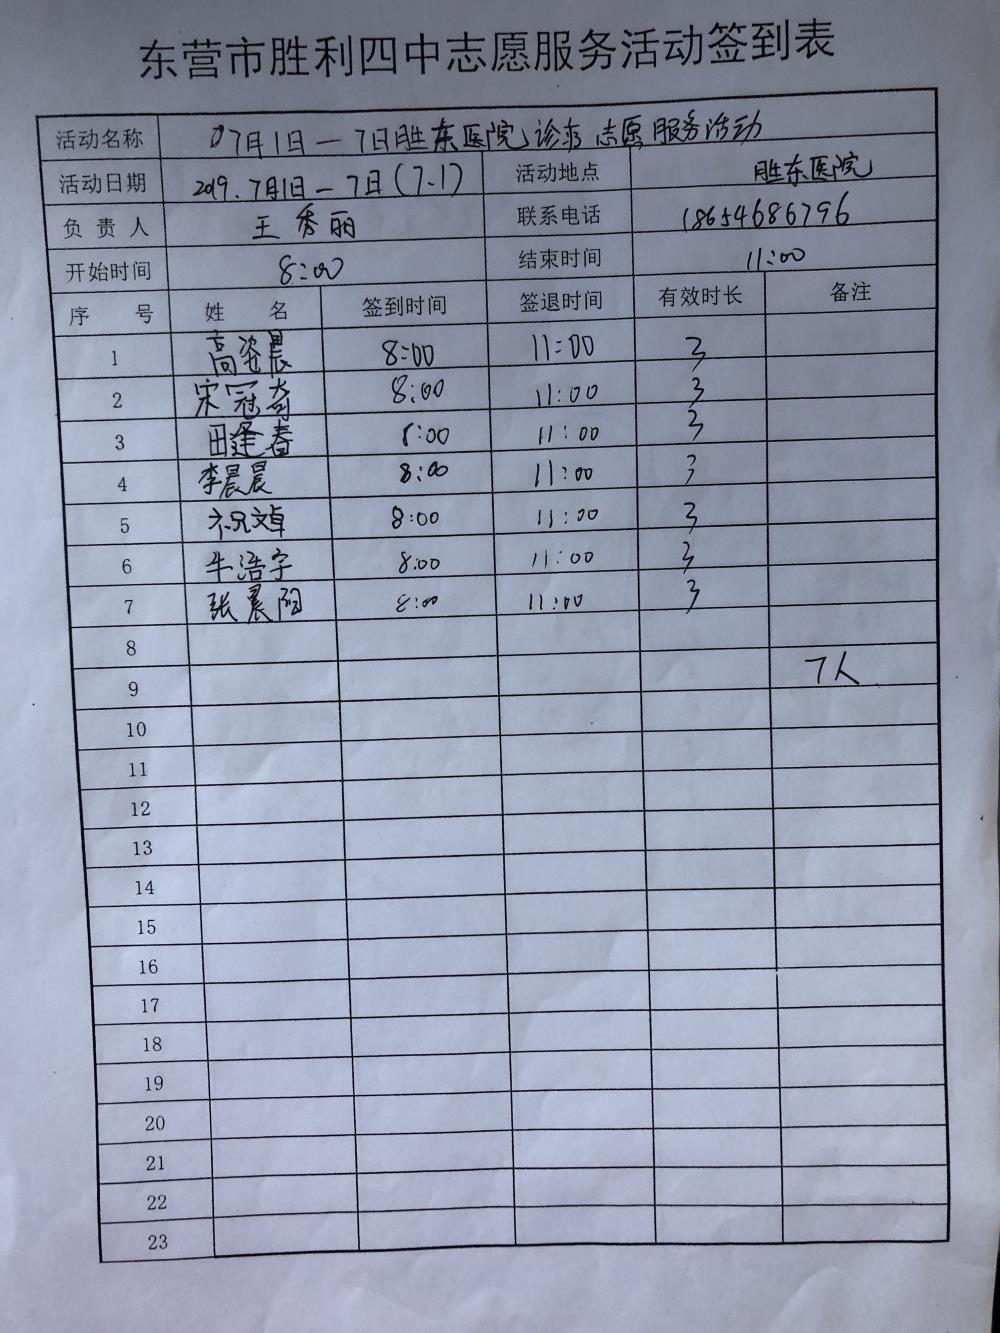 东营市胜利四中志愿服务活动签到表
活动名称 7月1日—7日胜东医院诊求志愿服务活动
活动日期 2019.7月1日—7日(7.1) 活动地点 胜东医院
负责人 王秀丽 联系电话 18654686796
开始时间 8:00 结束时间 11:00
序号 姓名 签到时间 签退时间 有效时长 备注
1 高晨 8:00 11:00 3
2 宋冠奇 8:00 11:00 3
3 田逢春 8:00 11:00 3
4 李晨晨 8:00 11:00 3
5 祝文卓 8:00 11:00 3
6 牛浩宇 8:00 11:00 3
7 张晨阳 8:00 11:00 3
8
9 7人
10
11
12
13
14
15
16
17
18
19
20
21
22
23